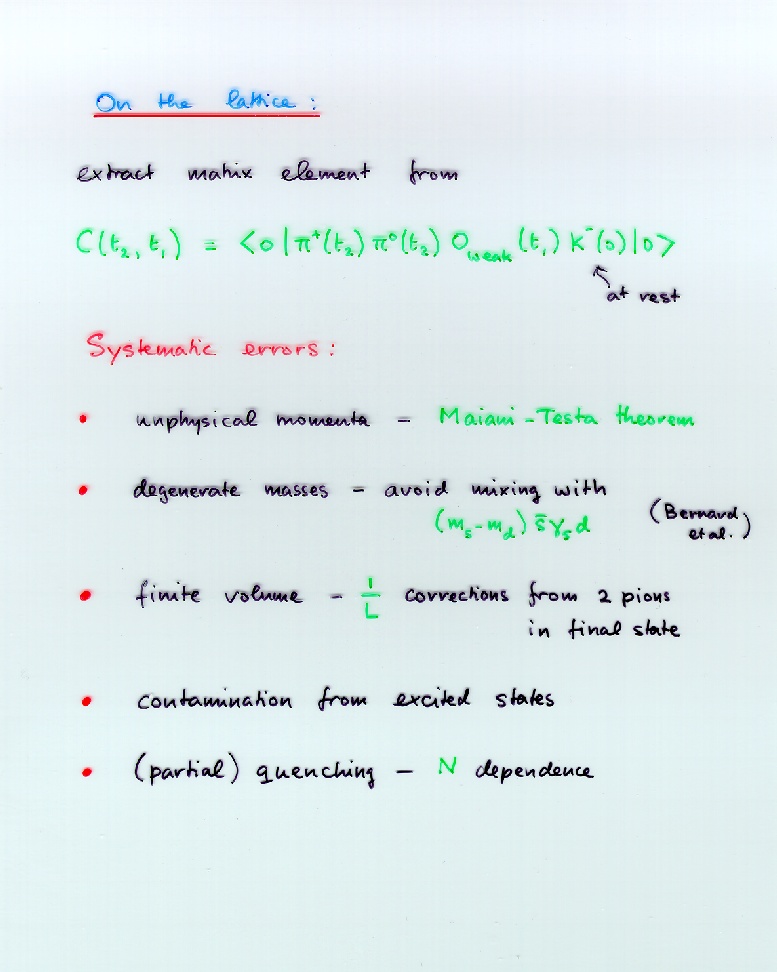 On the lattice :
extract matrix element from
C(t₂, t₁) = <0|π⁺(t₂) π⁰(t₂) O_weak (t₁) K⁻(0)|0>
at rest
Systematic errors :
• unphysical momenta – Maiani-Testa theorem
• degenerate masses – avoid mixing with
(m_s - m_d) s̄γ₅d (Bernard et al.)
• finite volume – 1/L corrections from 2 pions
in final state
• contamination from excited states
• (partial) quenching – N dependence